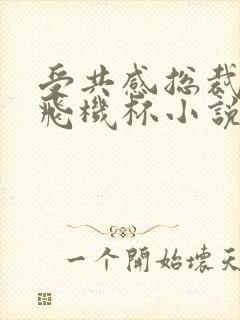 受共感总裁
飛機杯小説
一个開始壞天